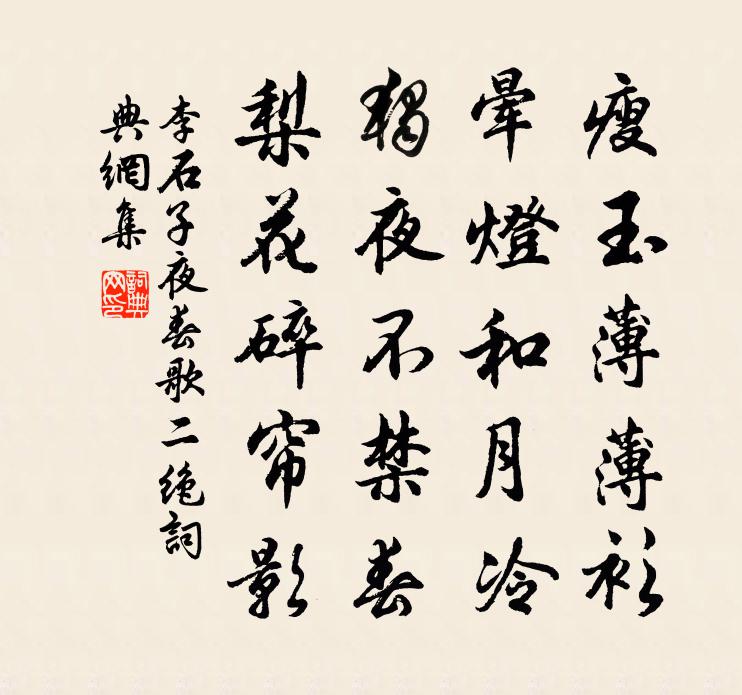 瘦玉薄薄衫
暈燈和月冷
獨夜不禁春
梨花碎帘影
李石子夜春歌二绝詞
典網集
詞典網印